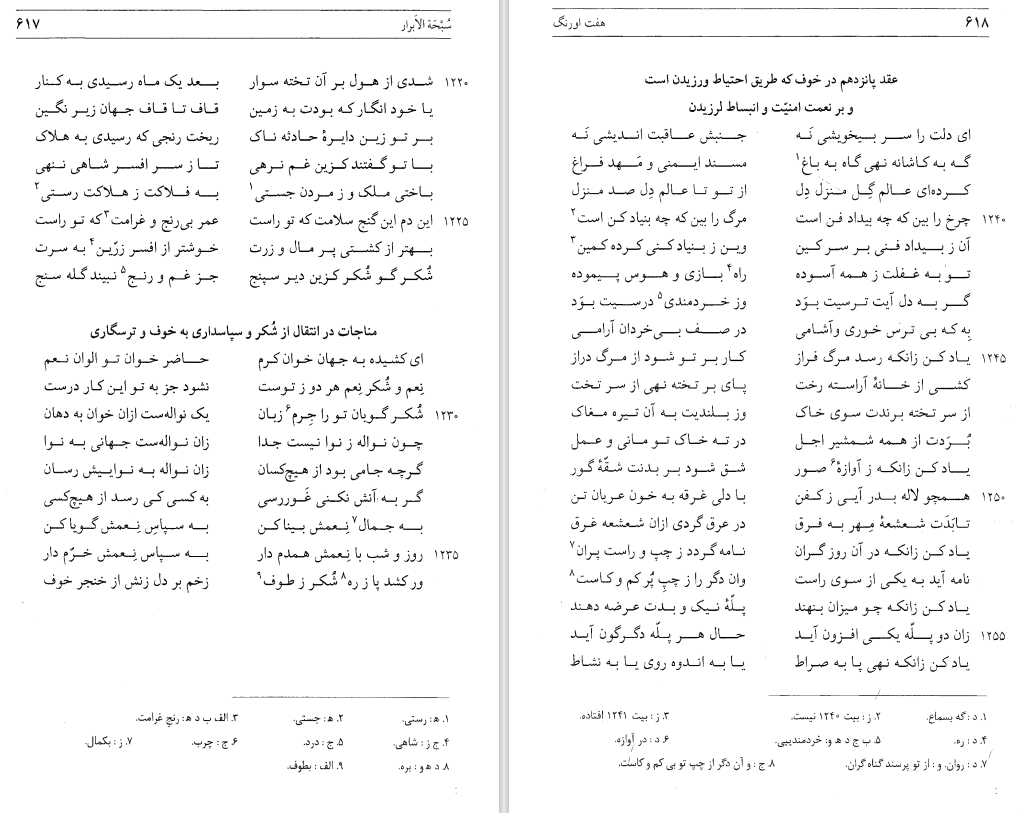 سُبْحَة الأبرار ۶۱۷
۱۲۲۰ شدی از هول بر آن تخته سوار بعد یک ماه رسیدی به کنار
یا خود انگار که بودت به زمین قاف تا قاف جهان زیر نگین
بر تو زین دایرهٔ حادثه ناک ریخت رنجی که رسیدی به هلاک
با تو گفتند کزین غم نرهی تا ز سر افسر شاهی ننهی
باختی ملک و ز مردن جستی۱ به فلاکت ز هلاکت رستی۲
۱۲۲۵ این دم این گنج سلامت که تو راست عمر بی‌رنج و غرامت۳ که تو راست
بهتر از کشتی پر مال و زرت خوشتر از افسر زرّین۴ به سرت
شُکر گو شُکر کزین دیر سپنج جز غم و رنج۵ نبیند گله سنج
مناجات در انتقال از شُکر و سپاسداری به خوف و ترسگاری
ای کشیده به جهان خوان کرم حاضر خوان تو الوان نعم
نِعم و شُکر نِعم هر دو ز توست نشود جز به تو این کار درست
۱۲۳۰ شُکر گویان تو را چِرم۶ زبان یک نواله‌ست ازان خوان به دهان
چون نواله ز نوا نیست جدا زان نواله‌ست جهانی به نوا
گرچه جامی بود از هیچ‌کسان زان نواله به نواییش رسان
گر به آنش نکنی غَوررسی به کسی کی رسد از هیچ‌کسی
به جمال۷ نِعمش بینا کن به سپاسِ نِعمش گویا کن
۱۲۳۵ روز و شب با نِعمش همدم دار به سپاس نِعمش خرّم دار
ور کشد پا ز ره۸ شُکر ز طوف۹ زخم بر دل زنش از خنجر خوف
۱. ه‍: رستی. ۲. ه‍: جستی. ۳. الف ب د ه‍: رنج غرامت.
۴. ج ز: شاهی. ۵. ج: درد. ۶. ج: چرب. ۷. ز: بکمال.
۸. د ه‍ و: بره. ۹. الف: بطوف.
۶۱۸ هفت اورنگ
عقد پانزدهم در خوف که طریق احتیاط ورزیدن است
و بر نعمت امنیّت و انبساط لرزیدن
ای دلت را سر بیخویشی نَه جنبش عاقبت اندیشی نَه
گه به کاشانه نهی گاه به باغ۱ مسند ایمنی و مَهد فراغ
کرده‌ای عالم گِل منزل دِل از تو تا عالم دِل صد منزل
۱۲۴۰ چرخ را بین که چه بیداد فن است مرگ را بین که چه بنیاد کن است۲
آن ز بیداد فنی بر سر کین وین ز بنیاد کنی کرده کمین۳
تو به غفلت ز همه آسوده راه۴ بازی و هوس پیموده
گر به دل آیت ترسیت بوَد وز خردمندی۵ درسیت بوَد
بِه که بی ترس خوری وآشامی در صف بی‌خردان آرامی
۱۲۴۵ یاد کن زانکه رسد مرگ فراز کار بر تو شود از مرگ دراز
کشی از خانهٔ آراسته رخت پای بر تخته نهی از سر تخت
از سر تخته برندت سوی خاک وز بلندیت به آن تیره مغاک
بُرَدت از همه شمشیر اجل در ته خاک تو مانی و عمل
یاد کن زانکه ز آوازهٔ۶ صور شق شود بر بدنت شقّهٔ گور
۱۲۵۰ همچو لاله بدر آیی ز کفن با دلی غرقه به خون عریان تن
تابَدَت شعشعهٔ مِهر به فرق در عرق گردی ازان شعشعه غرق
یاد کن زانکه در آن روز گران نامه گردد ز چپ و راست پران۷
نامه آید به یکی از سوی راست وان دگر را ز چپِ پُر کم و کاست۸
یاد کن زانکه چو میزان بنهند پلّهٔ نیک و بدت عرضه دهند
۱۲۵۵ زان دو پلّه یکی افزون آید حال هر پلّه دگرگون آید
یاد کن زانکه نهی پا به صراط یا به اندوه روی یا به نشاط
۱. د: گه بسماع. ۲. ز: بیت ۱۲۴۰ نیست. ۳. ز: بیت ۱۲۴۱ افتاده.
۴. د: ره. ۵. ب ج د ه‍ و: خردمندیی. ۶. د: در آوازه.
۷. د: روان. و: از تو پرسند گناه گران. ۸. ج: و آن دگر از چپ تو بی کم و کاست.